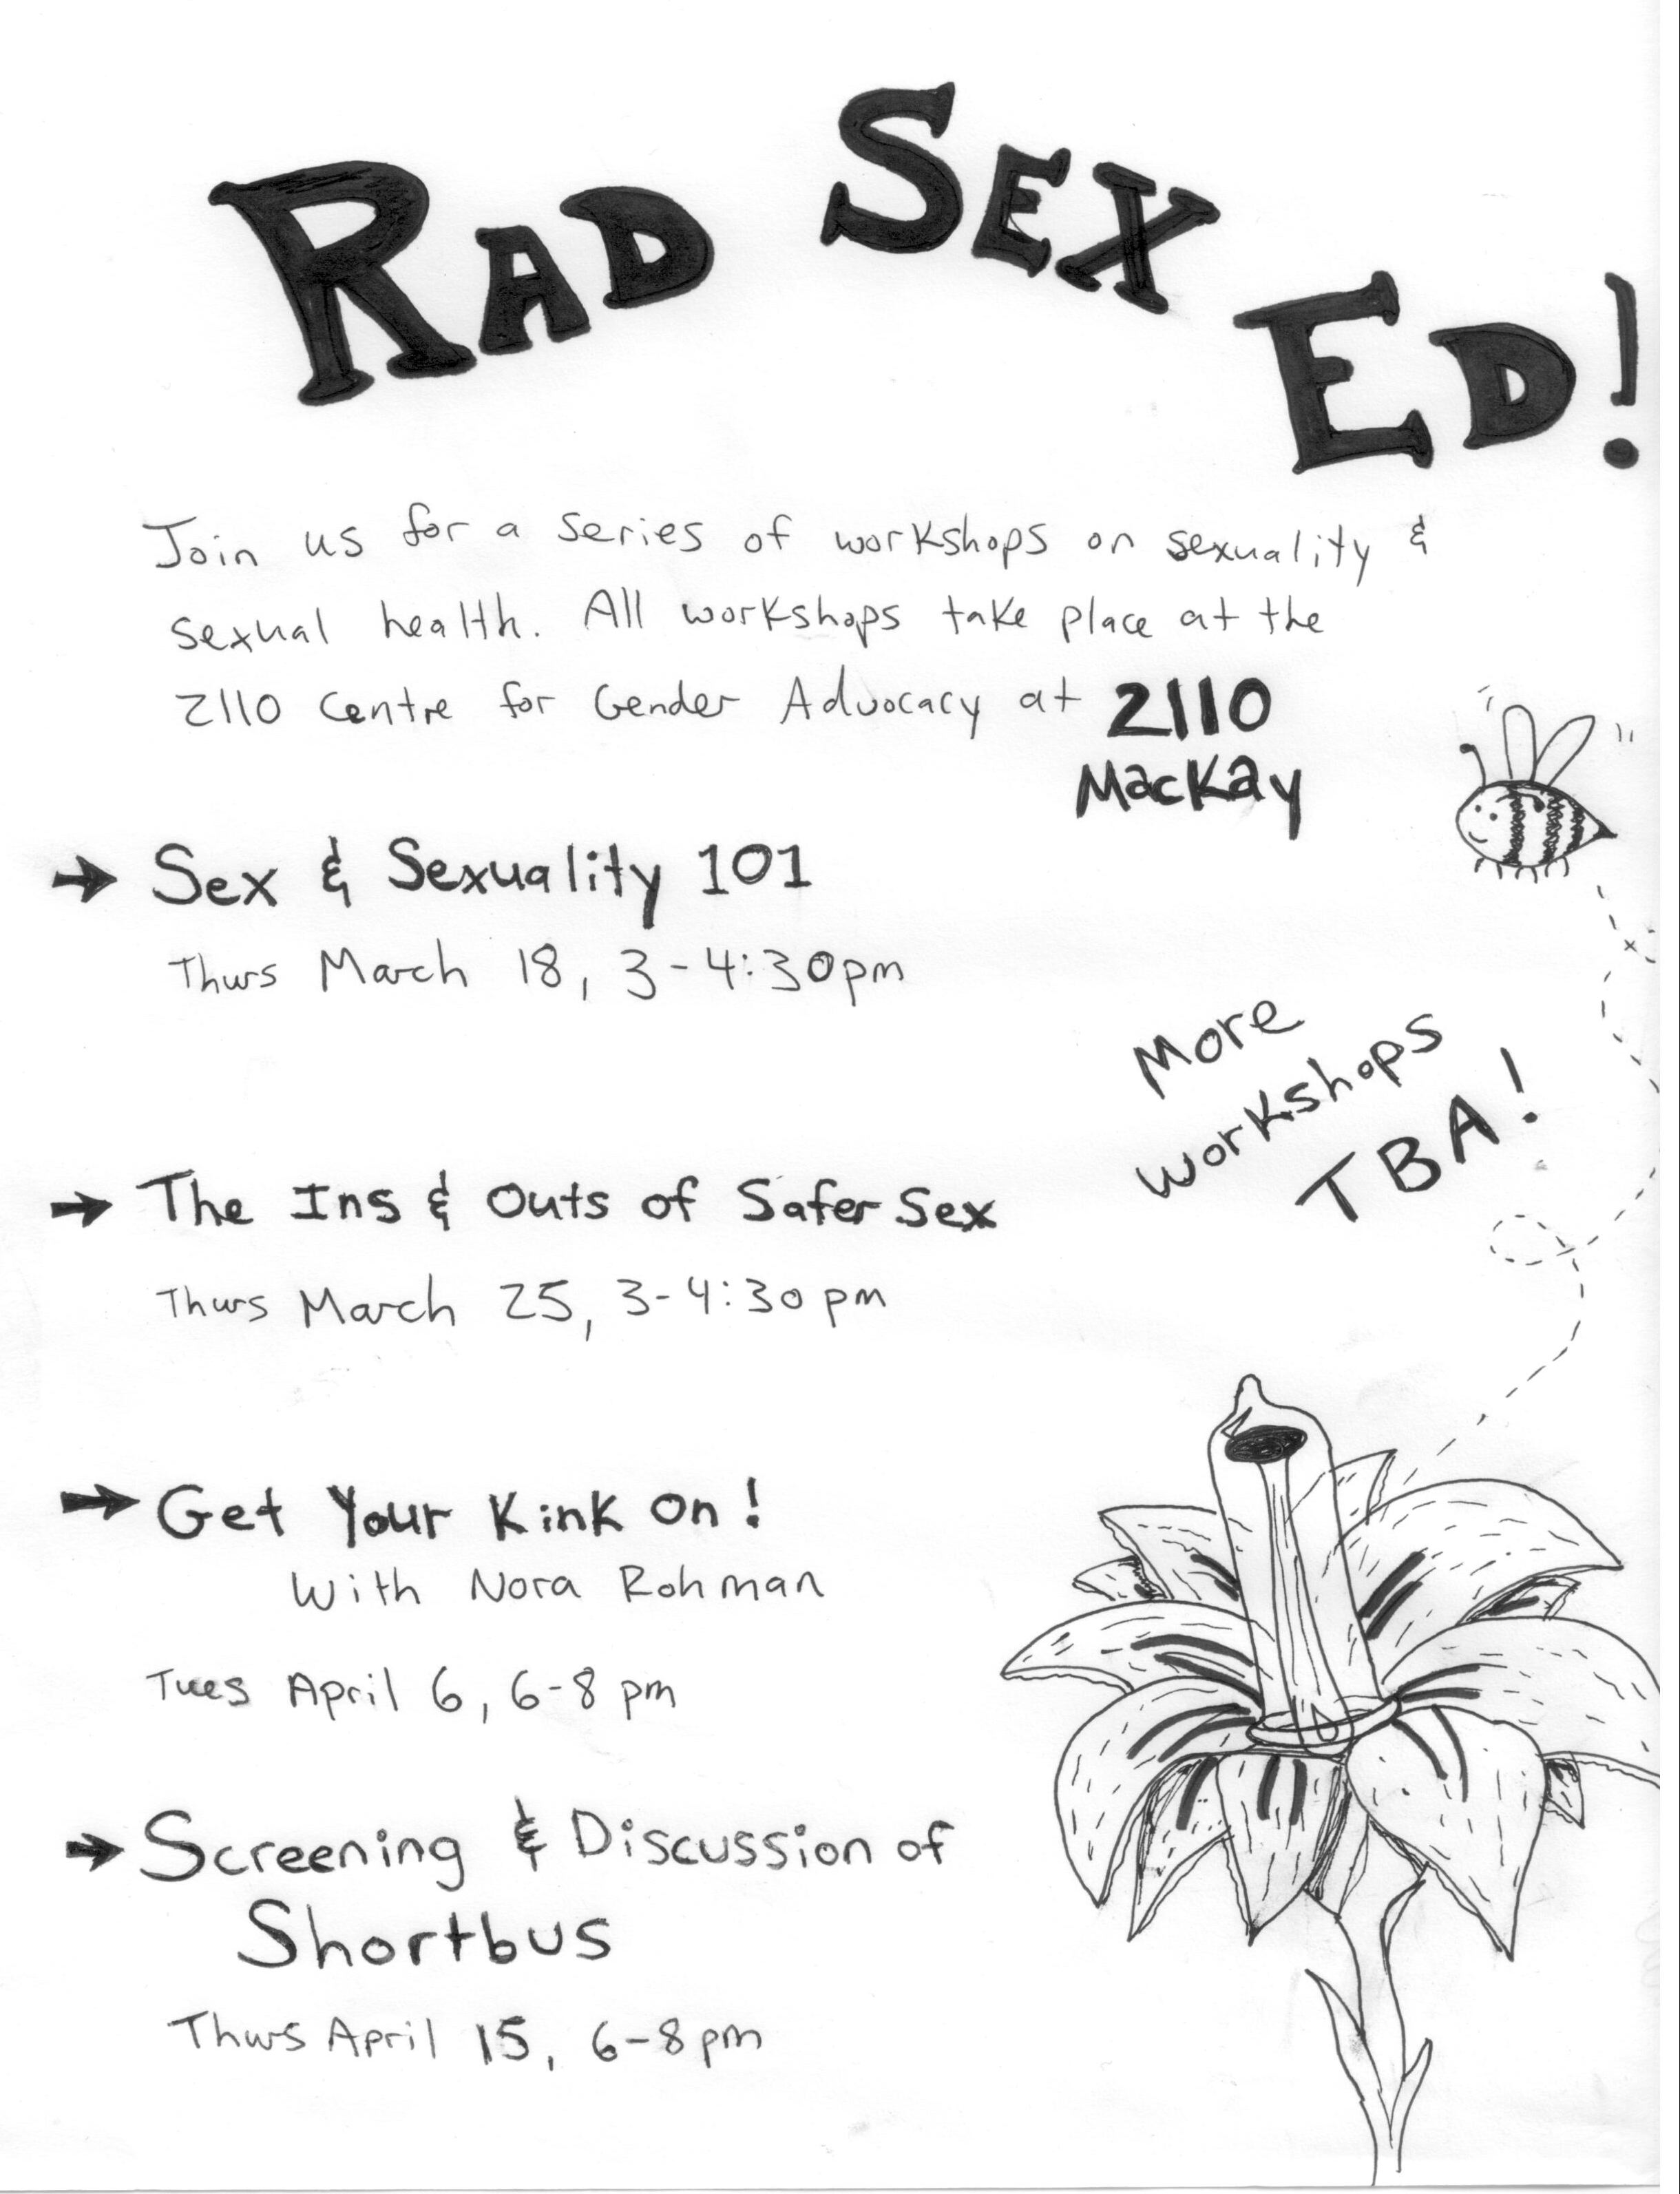 RAD SEX ED!
Join us for a series of workshops on sexuality &
sexual health. All workshops take place at the
2110 Centre for Gender Advocacy at 2110
Mackay
→ Sex & Sexuality 101
Thurs March 18, 3-4:30pm
More
workshops
TBA!
→ The Ins & Outs of Safer Sex
Thurs March 25, 3-4:30pm
→ Get Your Kink On!
With Nora Rohman
Tues April 6, 6-8pm
→ Screening & Discussion of
Shortbus
Thurs April 15, 6-8pm